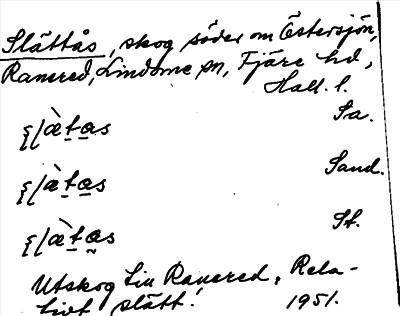 Slättås, skog söder om Östersjön,
Ranered, Lindome sn, Fjäre hd,
Hall. l.
Sa.
ʂl/ǽtas
Sand.
ʂl/ǽtas
St.
ʂl/ǽtas
Utskog till Ranered. Rela-
tivt slätt. 1951.